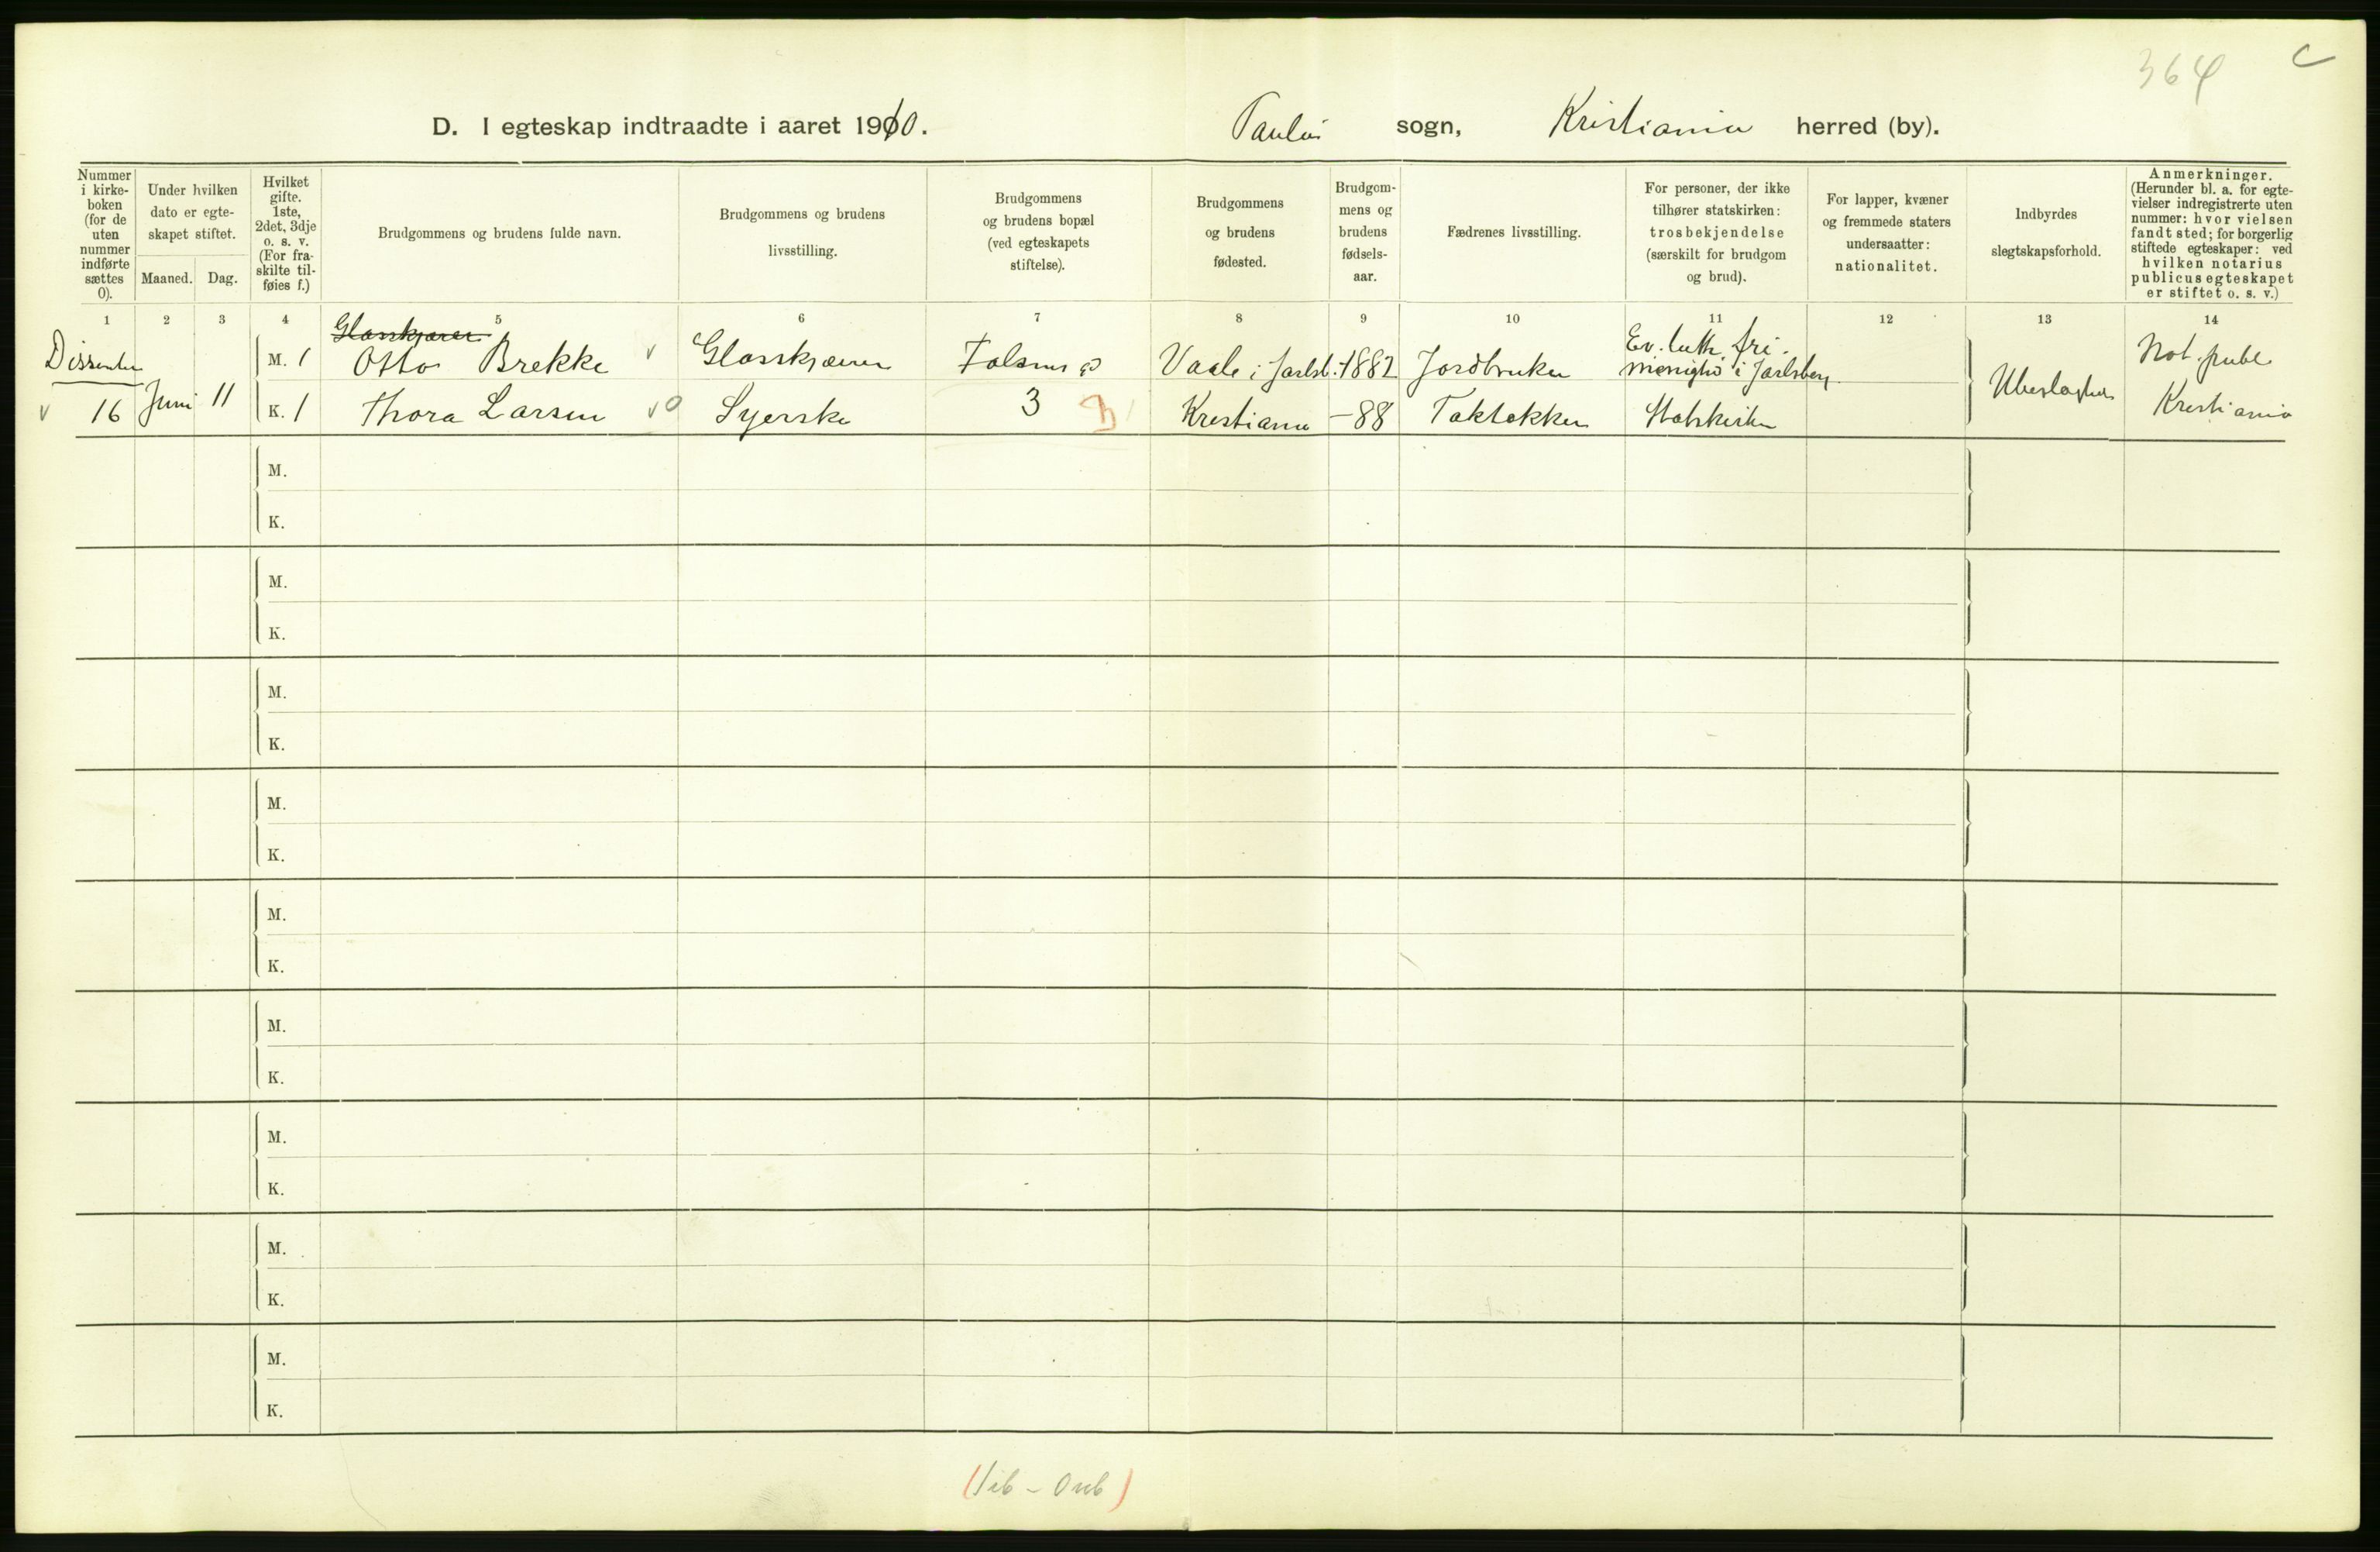 364 C
D. I egteskap indtraadte i aaret 1910. Paulus sogn, Kristiania herred (by).
Nummer i kirkeboken (for de uten nummer indførte sættes 0).
Under hvilken dato er egteskapet stiftet.
Maaned. Dag.
Hvilket gifte. 1ste, 2det, 3dje o. s. v. (For fraskilte tilføies f.)
Brudgommens og brudens fulde navn.
Brudgommens og brudens livsstilling.
Brudgommens og brudens bopæl (ved egteskapets stiftelse).
Brudgommens og brudens fødested.
Brudgommens og brudens fødselsaar.
Fædrenes livsstilling.
For personer, der ikke tilhører statskirken: trosbekjendelse (særskilt for brudgom og brud).
For lapper, kvæner og fremmede staters undersaatter: nationalitet.
Indbyrdes slegtskapsforhold.
Anmerkninger. (Herunder bl. a. for egtevielser indregistrerte uten nummer: hvor vielsen fandt sted; for borgerlig stiftede egteskaper: ved hvilken notarius publicus egteskapet er stiftet o. s. v.)
1 2 3 4 5 6 7 8 9 10 11 12 13 14
Glasskjærer
Dissenter M. 1 Otto Brekke v Glasskjærer Vaale i Jarlsb. 1882 Jordbruker Ev. luth. fri. menighd i Jarlsberg Not. publ
v 16 Juni 11 K. 1 Thora Larsen v 0 Syerske 3 Kristiania - 88 Taktækker Statskirken Ubeslægtet Kristiania
M.
K.
M.
K.
M.
K.
M.
K.
M.
K.
M.
K.
M.
K.
M.
K.
M.
K.
(1ib - 0ub)